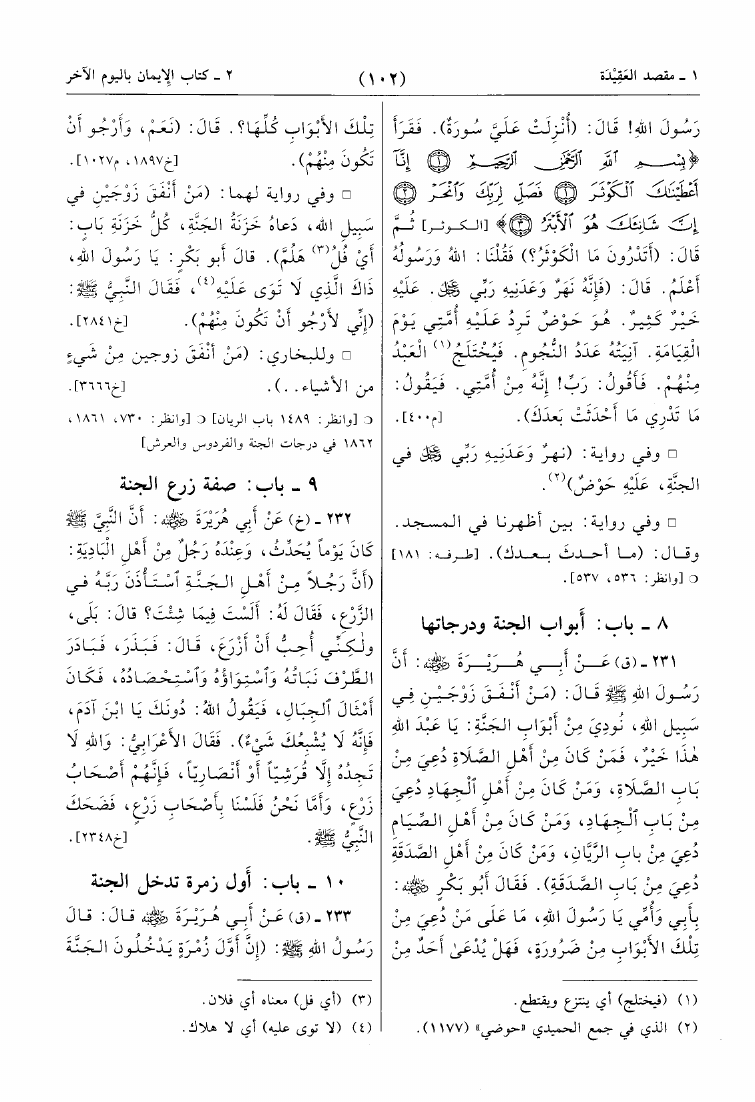 ١ ـ مقصد العَقِيْدَة
(١٠٢)
٢ ـ كتاب الإيمان باليوم الآخر
رَسُولَ اللهِ! قَالَ: (أُنْزِلَتْ عَلَيَّ سُورَةٌ). فَقَرَأَ
﴿بِسْمِ اللَّهِ الرَّحْمَٰنِ الرَّحِيمِ ۝١ إِنَّآ
أَعْطَيْنَٰكَ ٱلْكَوْثَرَ ۝١ فَصَلِّ لِرَبِّكَ وَٱنْحَرْ ۝٢
إِنَّ شَانِئَكَ هُوَ ٱلْأَبْتَرُ ۝٣﴾ [الكوثر] ثُمَّ
قَالَ: (أَتَدْرُونَ مَا الْكَوْثَرُ؟) فَقُلْنَا: اللهُ وَرَسُولُهُ
أَعْلَمُ. قَالَ: (فَإِنَّهُ نَهْرٌ وَعَدَنِيهِ رَبِّي عَزَّ وَجَلَّ. عَلَيْهِ
خَيْرٌ كَثِيرٌ. هُوَ حَوْضٌ تَرِدُ عَلَيْهِ أُمَّتِي يَوْمَ
الْقِيَامَةِ. آنِيَتُهُ عَدَدُ النُّجُومِ. فَيُخْتَلَجُ(١) الْعَبْدُ
مِنْهُمْ. فَأَقُولُ: رَبِّ! إِنَّهُ مِنْ أُمَّتِي. فَيَقُولُ:
مَا تَدْرِي مَا أَحْدَثَتْ بَعدَكَ). [م٤٠٠].
□ وفي رواية: (نهرٌ وَعَدَنِيهِ رَبِّي عَزَّ وَجَلَّ في
الجنَّةِ، عَلَيْهِ حَوْضٌ)(٢).
□ وفي رواية: بين أظهرنا في المسجد.
وقال: (ما أحدثَ بعدك). [طرفه: ١٨١]
○ [وانظر: ٥٣٦، ٥٣٧].
٨ ـ باب: أبواب الجنة ودرجاتها
٢٣١ ـ (ق) عَنْ أَبِي هُرَيْرَةَ رضي الله عنه: أَنَّ
رَسُولَ اللهِ ﷺ قَالَ: (مَنْ أَنْفَقَ زَوْجَيْنِ فِي
سَبِيلِ اللهِ، نُودِيَ مِنْ أَبْوَابِ الجَنَّةِ: يَا عَبْدَ اللهِ
هٰذَا خَيْرٌ، فَمَنْ كَانَ مِنْ أَهْلِ الصَّلَاةِ دُعِيَ مِنْ
بَابِ الصَّلَاةِ، وَمَنْ كَانَ مِنْ أَهْلِ ٱلْجِهَادِ دُعِيَ
مِنْ بَابِ ٱلْجِهَادِ، وَمَنْ كَانَ مِنْ أَهْلِ الصِّيَامِ
دُعِيَ مِنْ بابِ الرَّيَّانِ، وَمَنْ كَانَ مِنْ أَهْلِ الصَّدَقَةِ
دُعِيَ مِنْ بَابِ الصَّدَقَةِ). فَقَالَ أَبُو بَكْرٍ رضي الله عنه:
بِأَبِي وَأُمِّي يَا رَسُولَ اللهِ، مَا عَلَى مَنْ دُعِيَ مِنْ
تِلْكَ الأَبْوَابِ مِنْ ضَرُورَةٍ، فَهَلْ يُدْعَىٰ أَحَدٌ مِنْ
(١) (فيختلج) أي ينتزع ويقتطع.
(٢) الذي في جمع الحميدي «حوضي» (١١٧٧).
تِلْكَ الأَبْوَابِ كُلِّهَا؟. قَالَ: (نَعَمْ، وَأَرْجُو أَنْ
تَكُونَ مِنْهُمْ). [خ١٨٩٧، م١٠٢٧].
□ وفي رواية لهما: (مَنْ أَنْفَقَ زَوْجَيْنِ في
سَبِيلِ الله، دَعاهُ خَزَنَةُ الجَنَّةِ، كُلُّ خَزَنَةِ بَابٍ:
أَيْ فُلُ(٣) هَلُمَّ). قالَ أبو بَكْرٍ: يَا رَسُولَ اللهِ،
ذَاكَ الَّذِي لَا تَوَى عَلَيْهِ(٤)، فَقَالَ النَّبِيُّ ﷺ:
(إِنِّي لأَرْجُو أَنْ تَكُونَ مِنْهُمْ). [خ٢٨٤١].
□ وللبخاري: (مَنْ أَنْفَقَ زوجين مِنْ شَيءٍ
من الأشياء..). [خ٣٦٦٦].
○ [وانظر: ١٤٨٩ باب الريان] ○ [وانظر: ٧٣٠، ١٨٦١،
١٨٦٢ في درجات الجنة والفردوس والعرش]
٩ ـ باب: صفة زرع الجنة
٢٣٢ ـ (خ) عَنْ أَبِي هُرَيْرَةَ رضي الله عنه: أَنَّ النَّبِيَّ ﷺ
كَانَ يَوْماً يُحَدِّثُ، وَعِنْدَهُ رَجُلٌ مِنْ أَهْلِ الْبَادِيَةِ:
(أَنَّ رَجُلاً مِنْ أَهْلِ الجَنَّةِ ٱسْتَأْذَنَ رَبَّهُ في
الزَّرْعِ، فَقَالَ لَهُ: أَلَسْتَ فِيمَا شِئْتَ؟ قالَ: بَلَى،
ولٰكِنِّي أُحِبُّ أَنْ أَزْرَعَ، قَالَ: فَبَذَرَ، فَبَادَرَ
الطَّرْفَ نَبَاتُهُ وَٱسْتِوَاؤُهُ وَٱسْتِحْصَادُهُ، فَكَانَ
أَمْثَالَ ٱلْجِبَالِ، فَيَقُولُ اللهُ: دُونَكَ يَا ابْنَ آدَمَ،
فَإِنَّهُ لَا يُشْبِعُكَ شَيْءٌ). فَقَالَ الأَعْرَابِيُّ: وَاللهِ لَا
تَجِدُهُ إِلَّا قُرَشِيّاً أَوْ أَنْصَارِيّاً، فَإِنَّهُمْ أَصْحَابُ
زَرْعٍ، وَأَمَّا نَحْنُ فَلَسْنَا بِأَصْحَابِ زَرْعٍ، فَضَحِكَ
النَّبِيُّ ﷺ. [خ٢٣٤٨].
١٠ ـ باب: أول زمرة تدخل الجنة
٢٣٣ ـ (ق) عَنْ أَبِي هُرَيْرَةَ رضي الله عنه قالَ: قالَ
رَسُولُ اللهِ ﷺ: (إِنَّ أَوَّلَ زُمْرَةٍ يَدْخُلُونَ الجَنَّةَ
(٣) (أي فل) معناه أي فلان.
(٤) (لا توى عليه) أي لا هلاك.